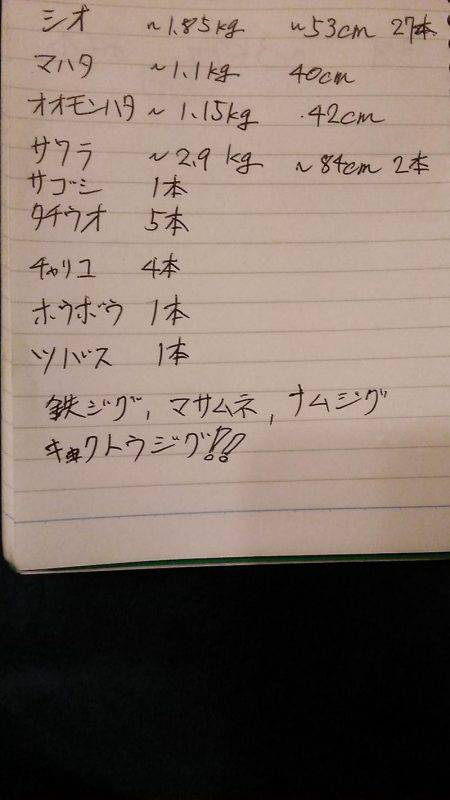 シオ ~1.85kg ~53cm 27本
マハタ ~1.1kg 40cm
オオモンハタ ~1.15kg .42cm
サワラ ~2.9kg ~84cm 2本
サゴシ 1本
タチウオ 5本
チャリコ 4本
ホウボウ 1本
ツバス 1本
鉄ジグ, マサムネ, ナムジグ
キョクトウジグ!!